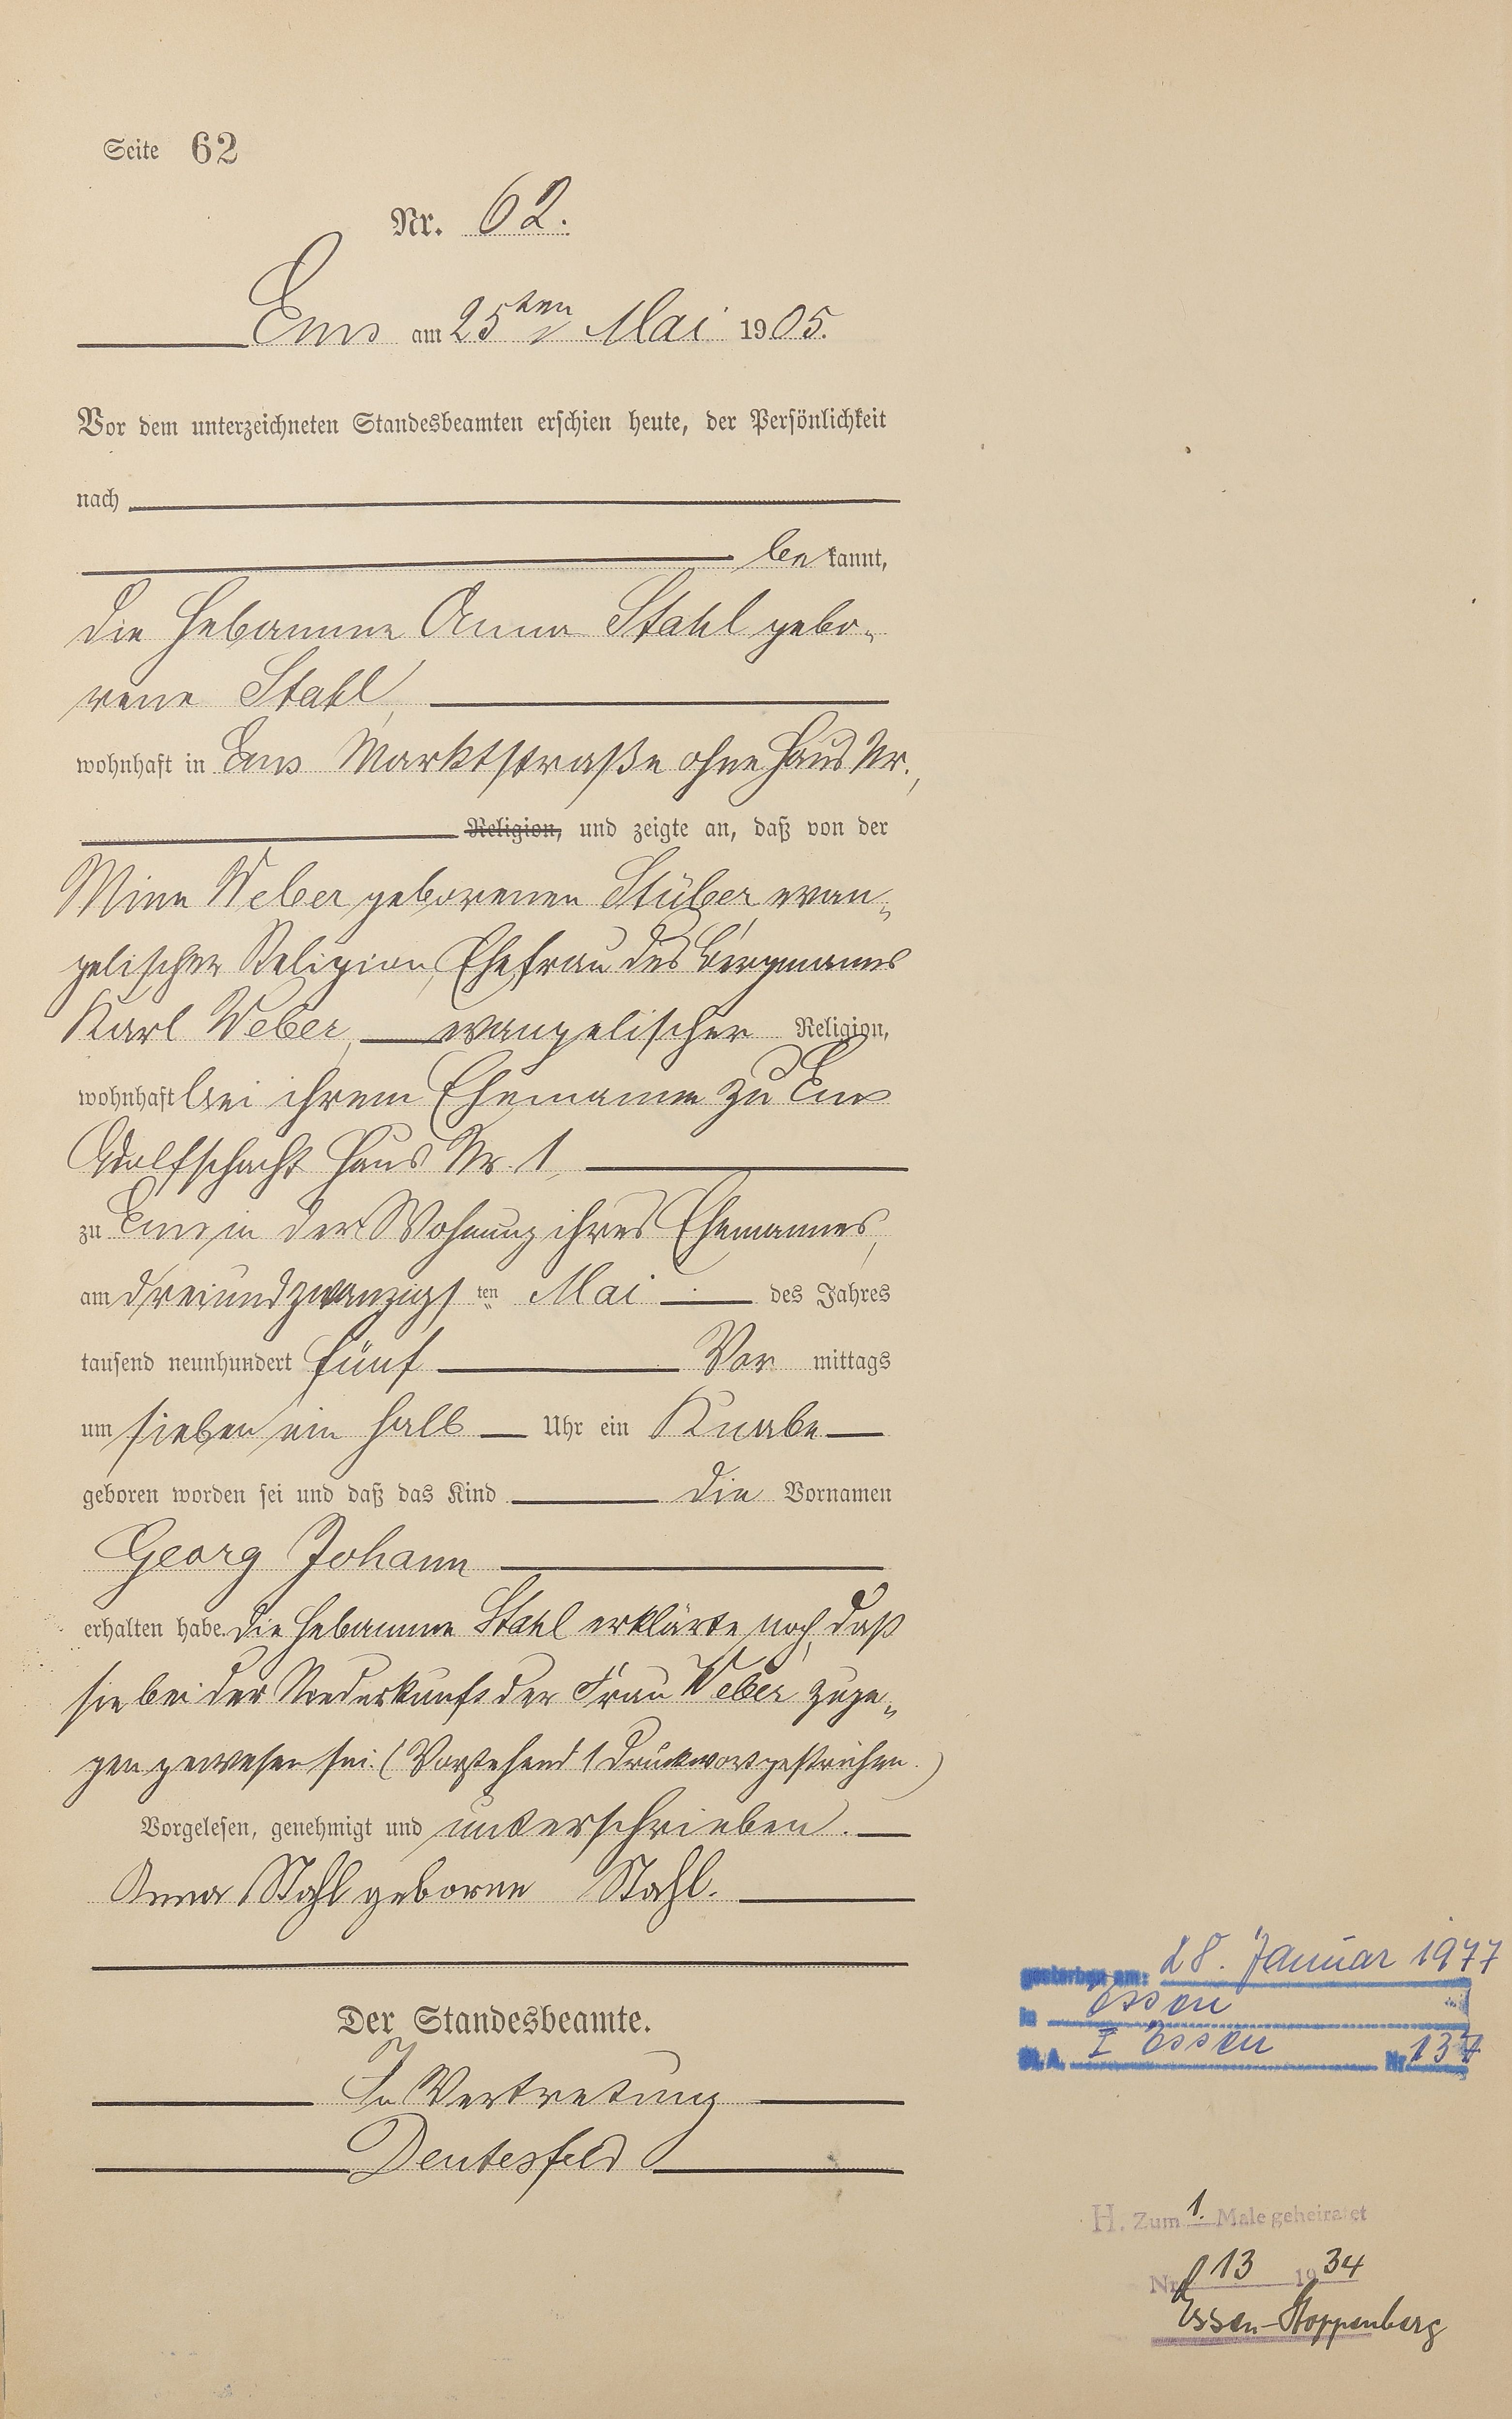 Seite 62
Nr. 62.
Ems am 25ten Mai 1905.
Vor dem unterzeichneten Standesbeamten erschien heute, der Persönlichkeit
nach
bekannt,
die Hebamme Anna Stahl gebo-
rene Stahl,
wohnhaft in Ems Marktstraße ohne Haus Nr.,
Religion, und zeigte an, daß von der
Mina Weber geborenen Stüber, evan-
gelischer Religion, Ehefrau des Bergmanns
Karl Weber, evangelischer Religion,
wohnhaft bei ihrem Ehemanne zu Ems
Adolfschacht Haus Nr. 1,
zu Ems in der Wohnung ihres Ehemannes,
am dreiundzwanzigsten Mai des Jahres
tausend neunhundert fünf Vormittags
um sieben ein halb Uhr ein Knabe
geboren worden sei und daß das Kind die Vornamen
Georg Johann
erhalten habe. Die Hebamme Stahl erklärte noch, daß
sie bei der Niederkunft der Frau Weber zuge-
gen gewesen sei. (Vorstehend 1 Druckwort gestrichen.)
Vorgelesen, genehmigt und unterschrieben.
Anna Stahl geborne Stahl.
Der Standesbeamte.
In Vertretung
Deutesfeld
gestorben am: 28. Januar 1977
in Essen
St. A. I Essen Nr. 137
H. Zum 1. Male geheiratet
Nr. 13 1934
Essen-Stoppenberg